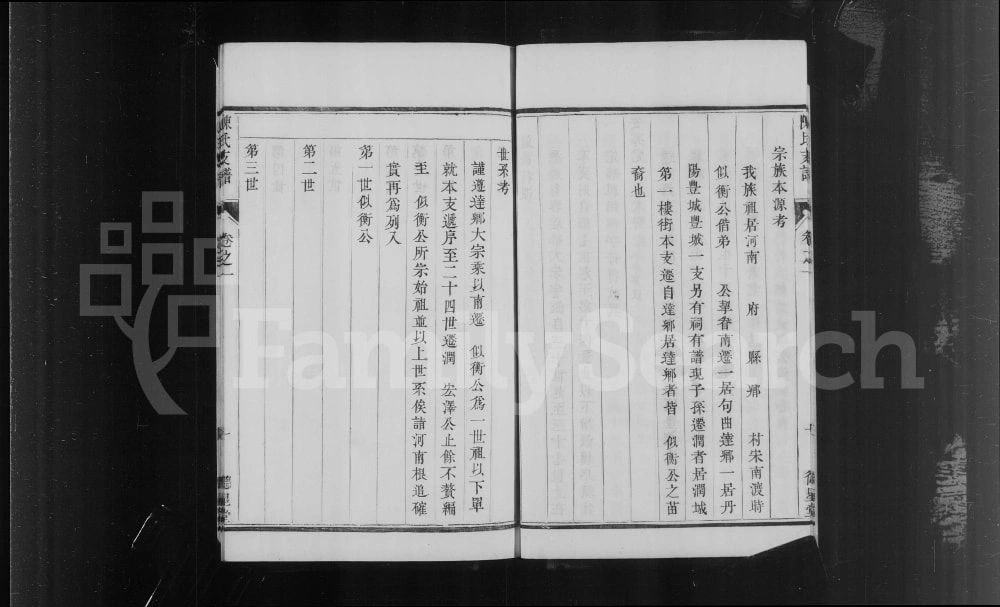 宗族本源考
我族祖居河南　府　縣　鄉　村宋南渡時
似衡公偕弟　公挈眷南遷一居句曲達鄉一居丹
陽豐城豐城一支另有祠有譜現子孫遷潤者居潤城
第一樓街本支遷自達鄉居達鄉者皆　似衡公之苗
裔也
陳氏支譜
卷之一
德星堂
世系考
謹遵達鄉大宗乘以南遷　似衡公爲一世祖以下單
就本支遞序至二十四世遷潤　宏澤公止餘不贅編
至　似衡公所宗始祖並以上世系俟請河南根追確
實再爲列入
第一世似衡公
第二世
第三世
陳氏支譜
卷之一
一
德星堂
FamilySearch